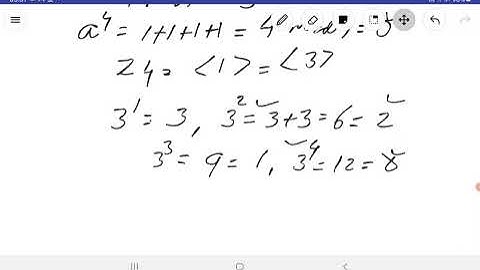 a⁴ = 1+1+1+1 = 4
Z4 = <1> = <3>
3¹ = 3, 3² = 3+3 = 6 = 2
3³ = 9 = 1, 3⁴ = 12 = 0